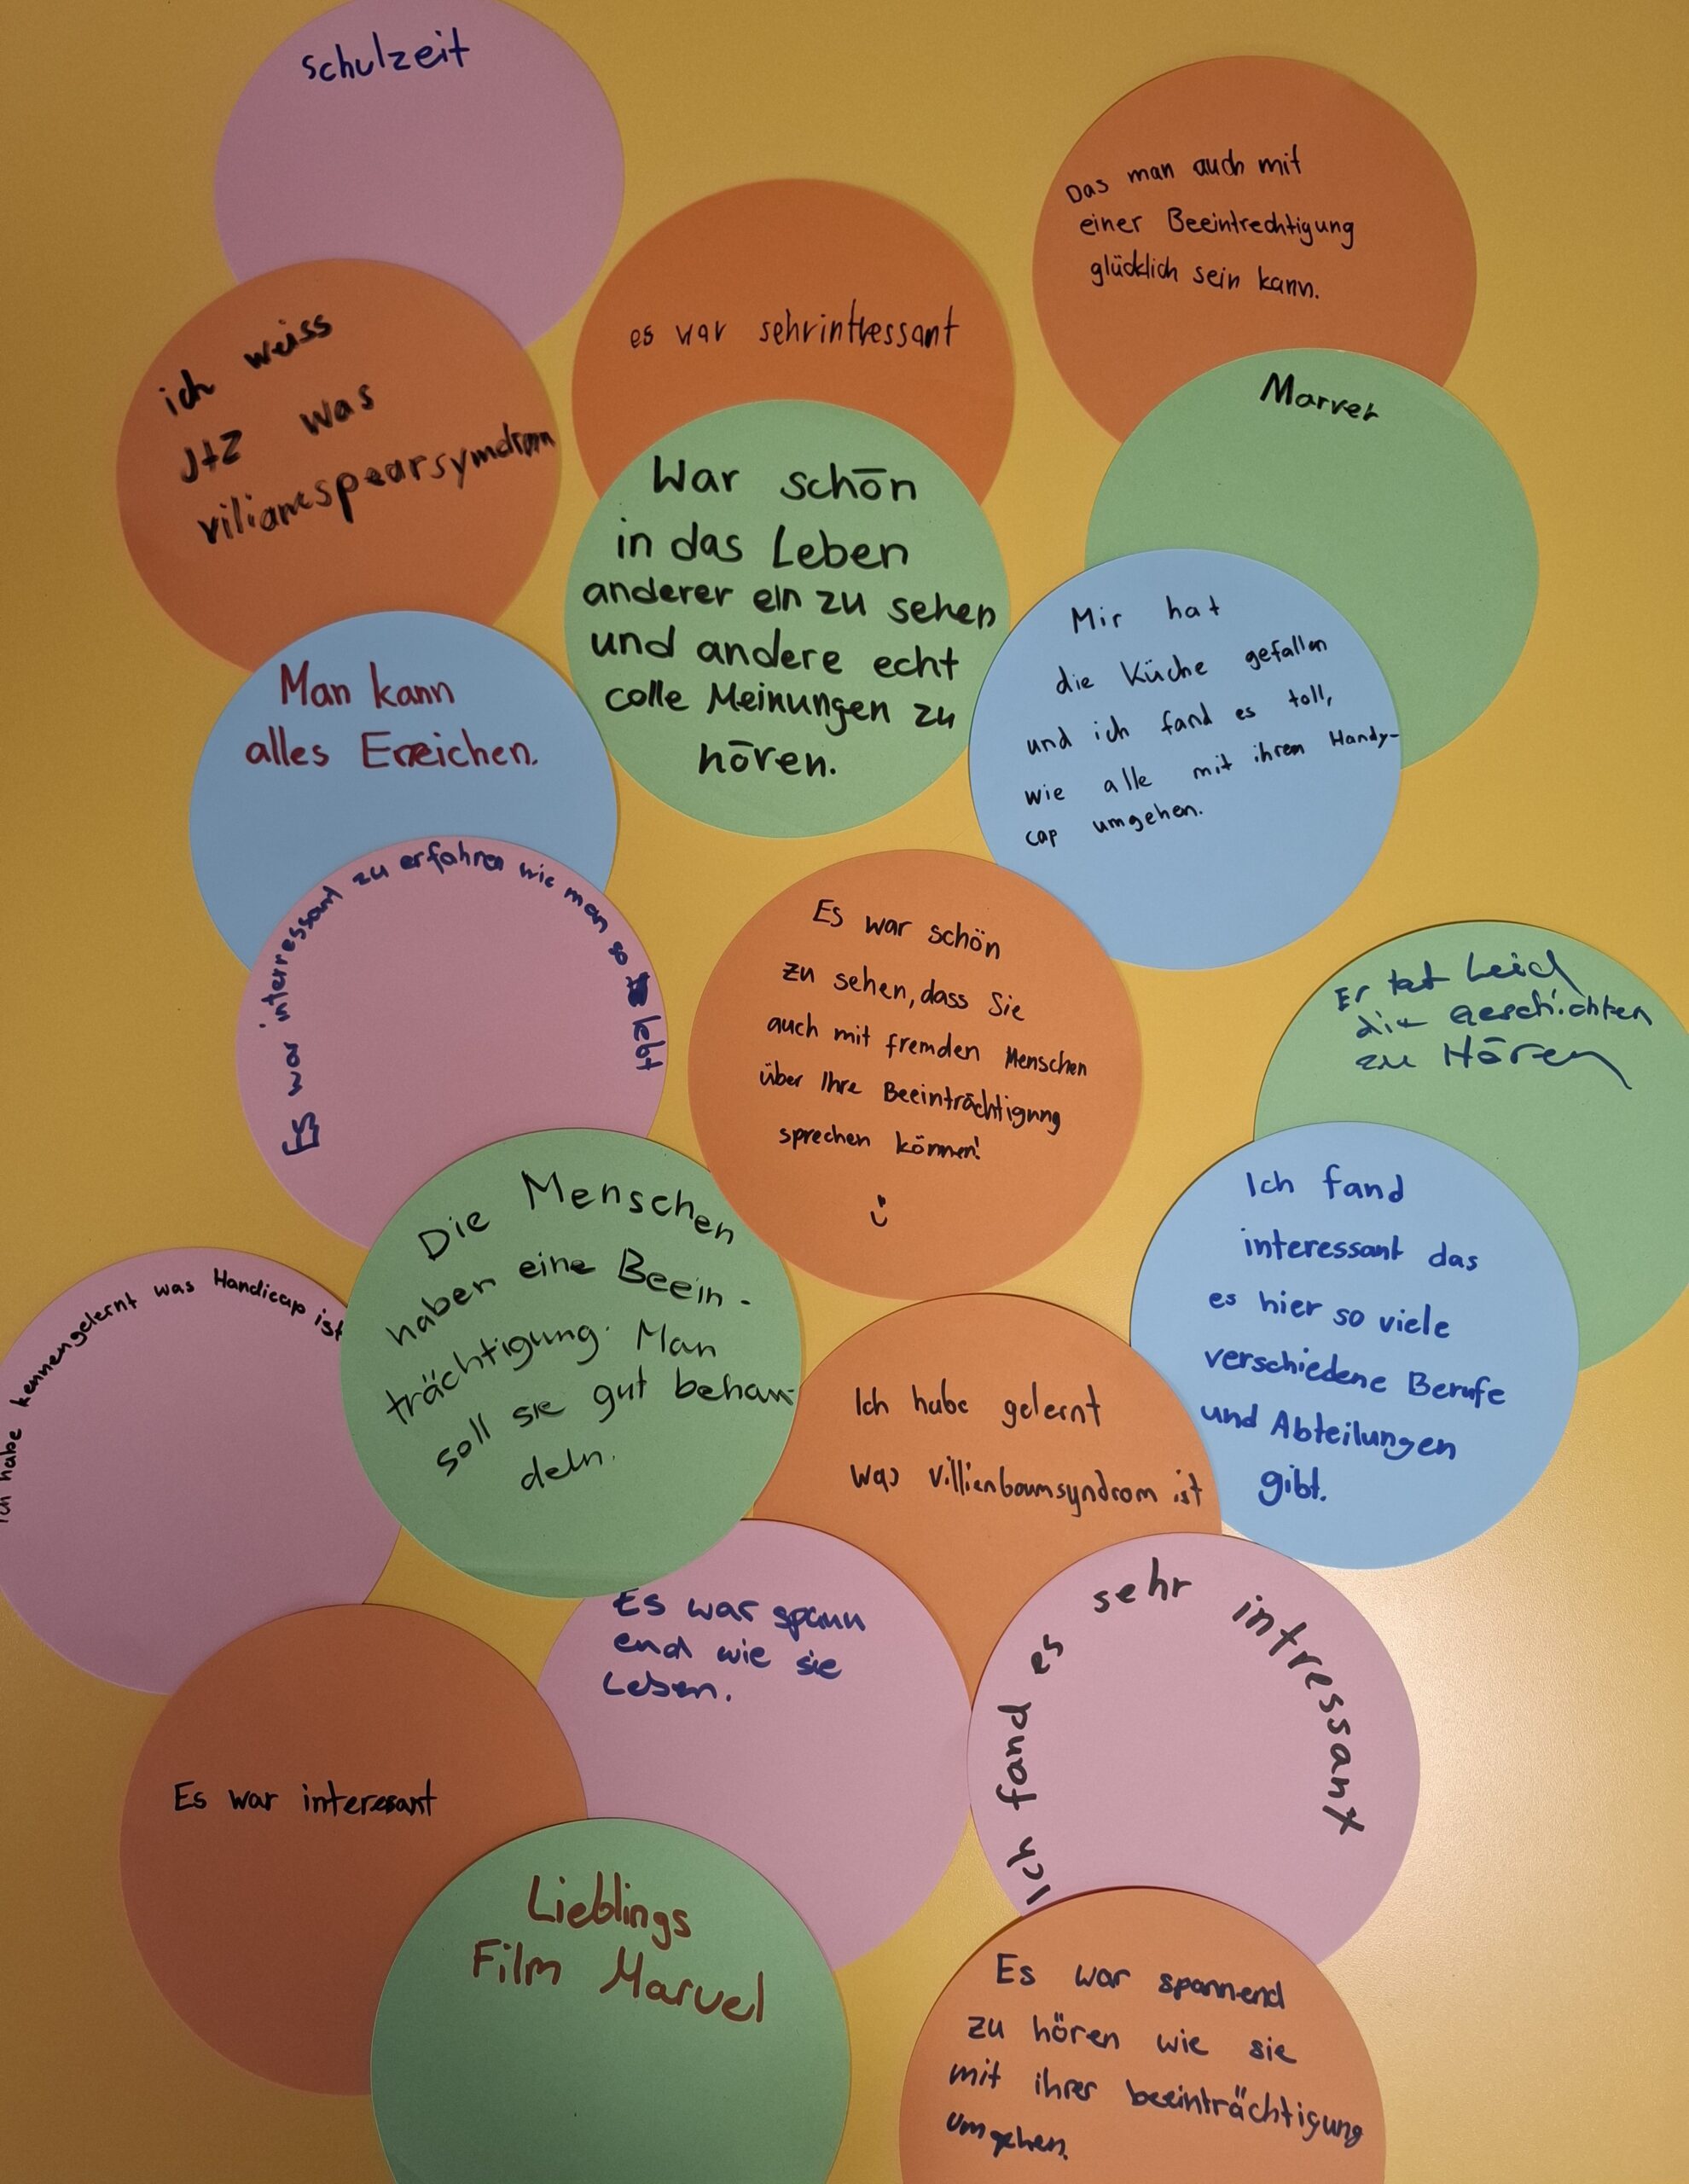 Schulzeit
Das man auch mit
einer Beeintrechtigung
glücklich sein kann.
es war sehrintressant
ich weiss
Jtz was
Marvel
War schön
in das Leben
anderer ein zu sehen
und andere echt
colle Meinungen zu
hören.
Mir hat
die Küche gefallen
und ich fand es toll,
wie alle mit ihrem Handy-
cap umgehen.
Man kann
alles Erreichen.
Es war interressant zu erfahren wie man so lebt
Es war schön
zu sehen, dass Sie
auch mit fremden Menschen
über Ihre Beeinträchtigung
sprechen können!
Er tat Leid
die Geschichten
zu Hören
Die Menschen
haben eine Beein-
trächtigung. Man
soll sie gut behan-
deln.
Ich fand
interessant das
es hier so viele
verschiedene Berufe
und Abteilungen
gibt.
Ich habe kennengelernt was Handicap ist
Ich habe gelernt
was villienbaumsyndrom ist
Es war spann
end wie sie
Leben.
Ich fand es sehr intressant
Es war interesant
Lieblings
Film Marvel
Es war spannend
zu hören wie sie
mit ihrer beeinträchtigung
umgehen.